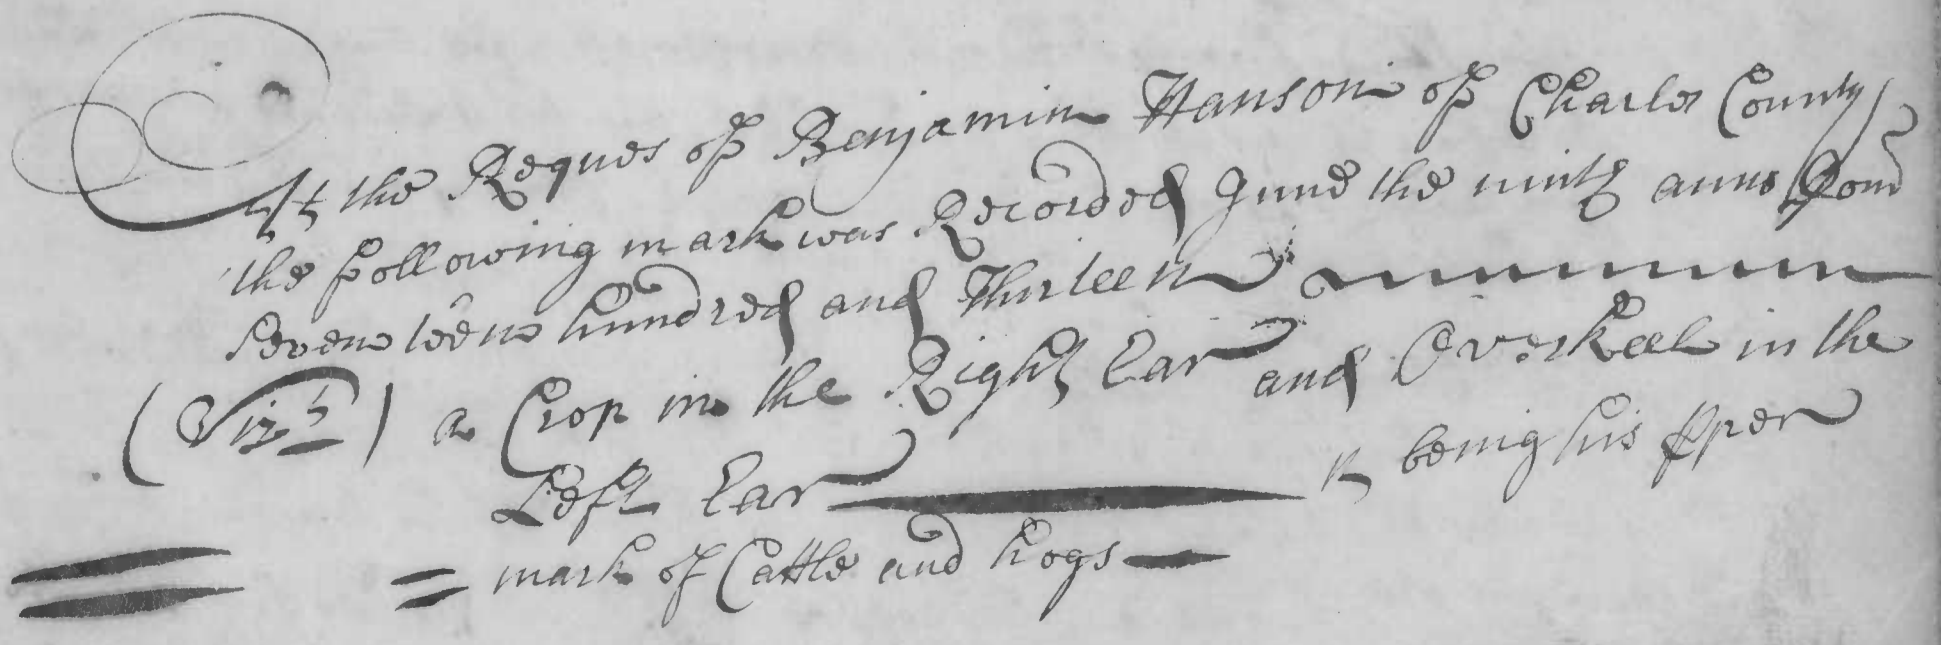 At the Reques of Benjamin Hanson of Charles County
the following mark was Recorded June the ninth anno Dom
Seventeen hundred and Thirteen
(Vizt) a Crop in the Right Ear and Overkeel in the
Left Ear being his pper
mark of Cattle and hogs